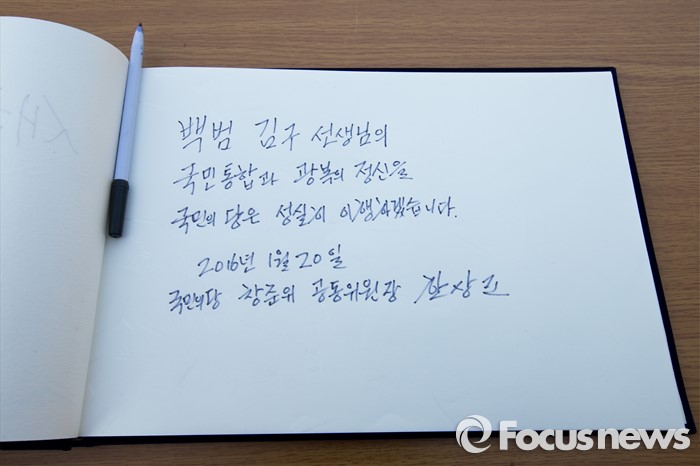 백범 김구 선생님의
국민통합과 광복의 정신을
국민의 당은 성실히 이행하겠습니다.
2016년 1월 20일
국민의당 창준위 공동위원장 한상진
Focusnews